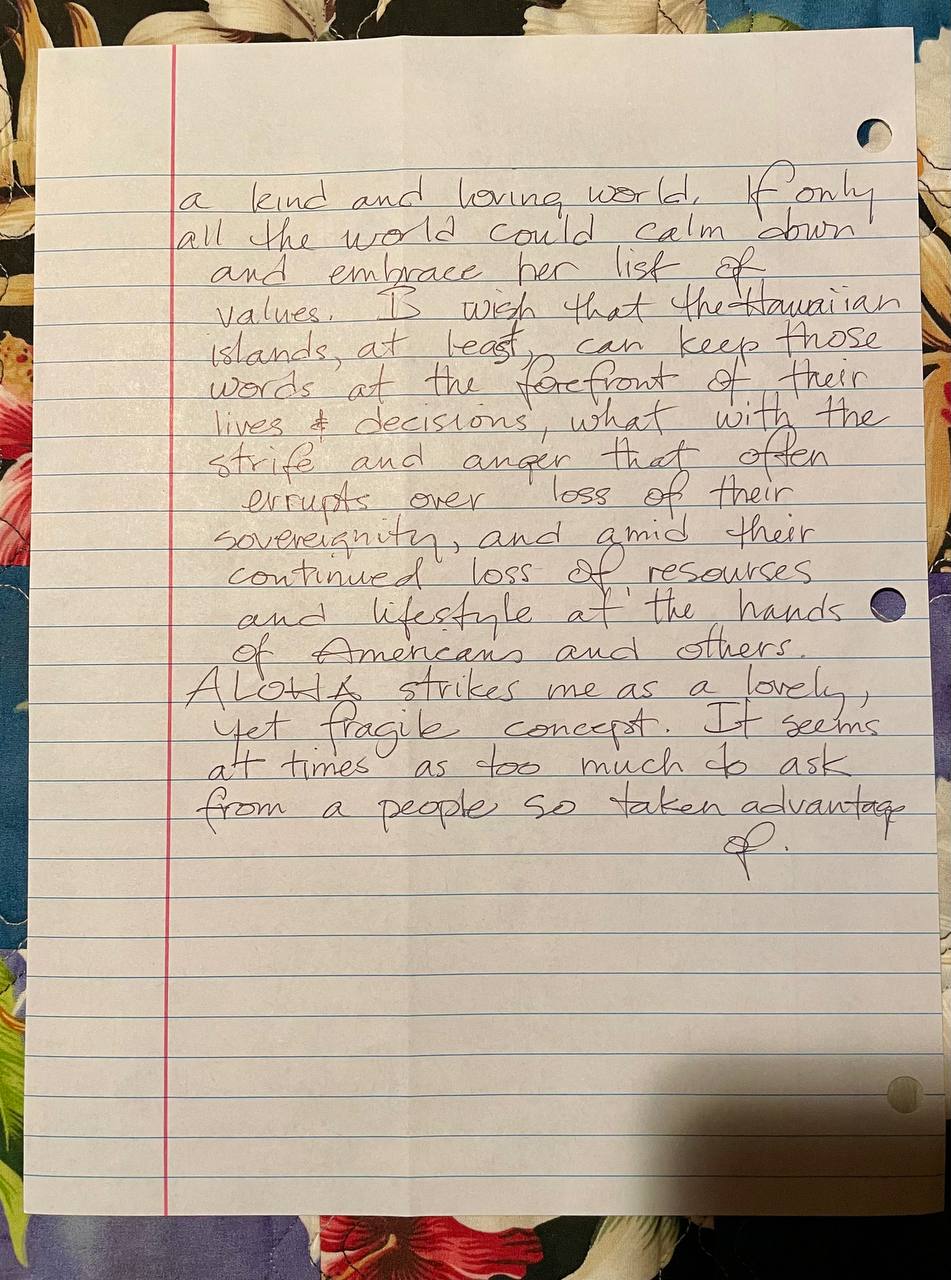 a kind and loving world. If only
all the world could calm down
and embrace her list of
values. I wish that the Hawaiian
islands, at least, can keep those
words at the forefront of their
lives & decisions, what with the
strife and anger that often
errupts over loss of their
sovereignity, and amid their
continued loss of resourses
and lifestyle at the hands
of Americans and others.
ALOHA strikes me as a lovely,
yet fragile concept. It seems
at times as too much to ask
from a people so taken advantage
of.